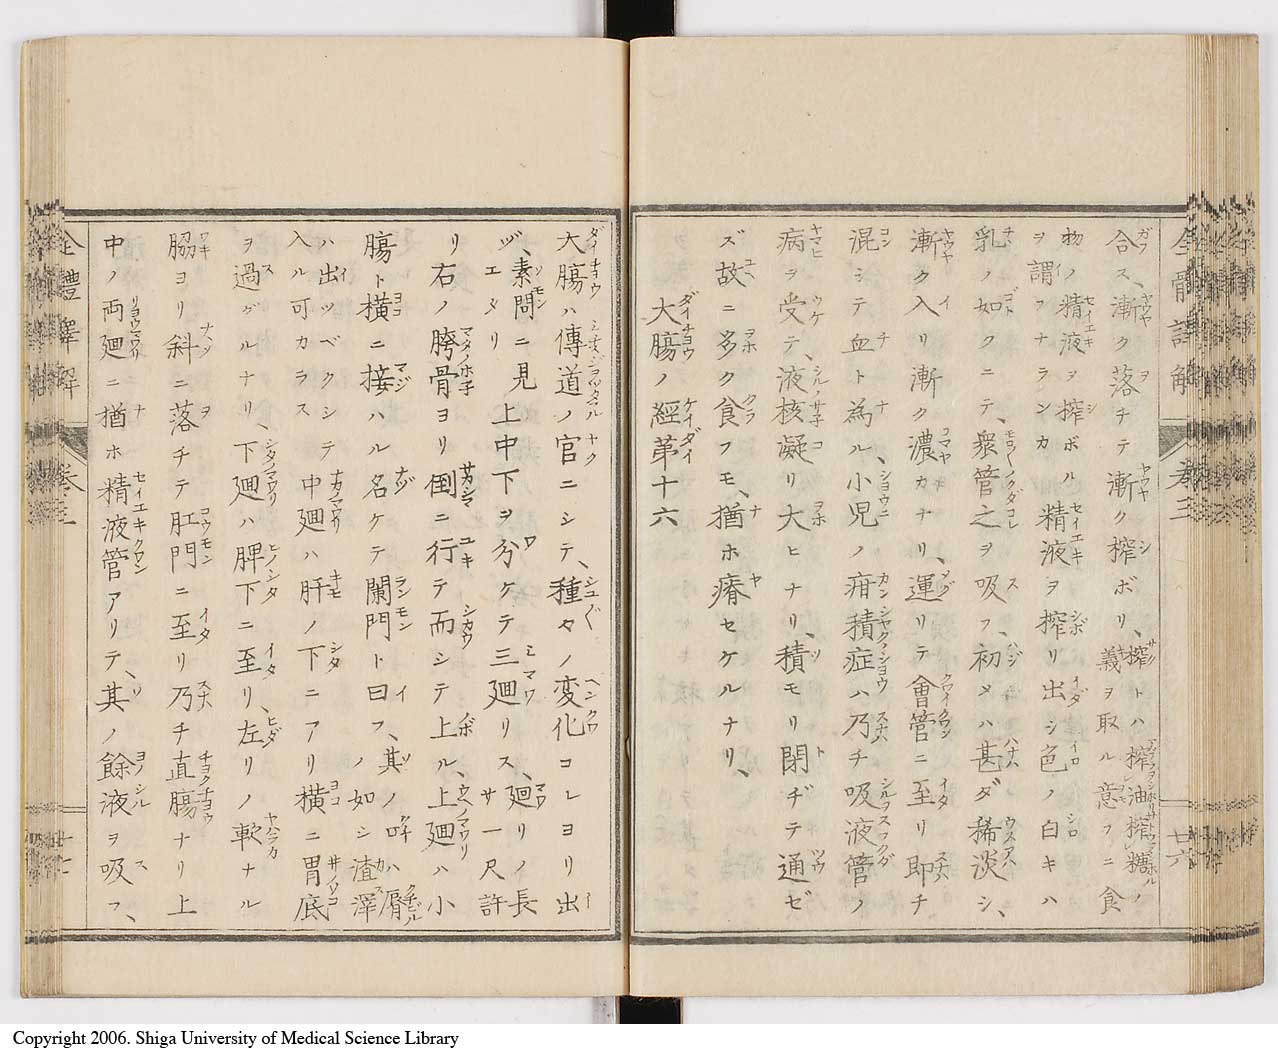 合ス、漸ク落チテ漸ク搾ボリ、搾トハ搾油搾糖ノ義ヲ取ル意フニ食
物ノ精液ヲ搾ボル精液ヲ搾リ出シ色ノ白キハ
ヲ謂フナランカ
乳ノ如クニテ、衆管之ヲ吸フ、初メハ甚ダ稀淡シ、
漸ク入リ漸ク濃カナリ、運リテ會管ニ至リ即チ
混シテ血ト為ル、小児ノ疳積症ハ乃チ吸液管ノ
病ヲ受テ、液核凝リ大ヒナリ、積モリ閉ヂテ通ゼ
ズ故ニ多ク食フモ、猶ホ瘠セケルナリ、
大膓ノ經第十六
大膓ハ傳道ノ官ニシテ、種々ノ変化コレヨリ出
ヅ、素問ニ見エタリ上中下ヲ分ケテ三廻リス、廻リノ長サ一尺許
リ右ノ胯骨ヨリ倒ニ行テ而シテ上ル、上廻ハ小
膓ト横ニ接ハル名ケテ闌門ト曰フ、其ノ
ハ出ツベクシテ入ル可カラス中廻ハ肝ノ下ニアリ横ニ胃底
ヲ過グルナリ、下廻ハ脾下ニ至リ、左リノ軟ナル
脇ヨリ斜ニ落チテ肛門ニ至リ乃チ直膓ナリ上
中ノ両廻ニ猶ホ精液管アリテ、其ノ餘液ヲ吸フ、
全體譯解
卷之三
Copyright 2006. Shiga University of Medical Science Library